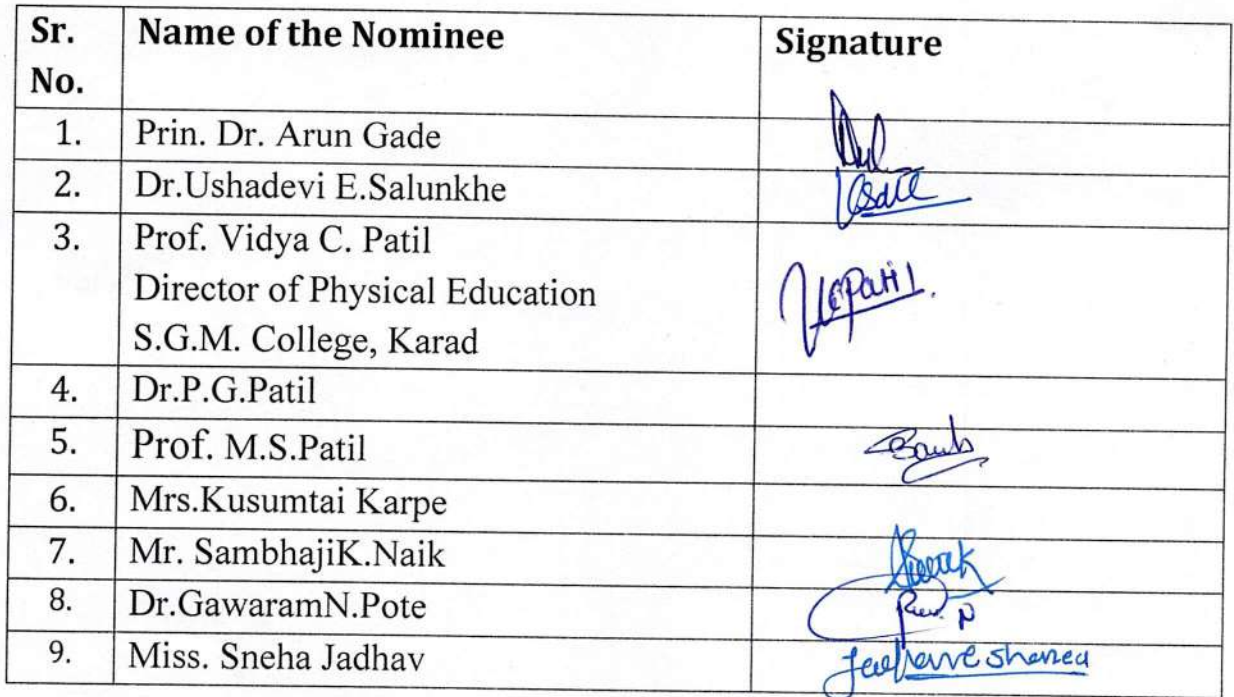 Sr. No. Name of the Nominee Signature
1. Prin. Dr. Arun Gade
2. Dr.Ushadevi E.Salunkhe
3. Prof. Vidya C. Patil
Director of Physical Education
S.G.M. College, Karad
VCPatil.
4. Dr.P.G.Patil
5. Prof. M.S.Patil
6. Mrs.Kusumtai Karpe
7. Mr. SambhajiK.Naik
8. Dr.GawaramN.Pote
9. Miss. Sneha Jadhav